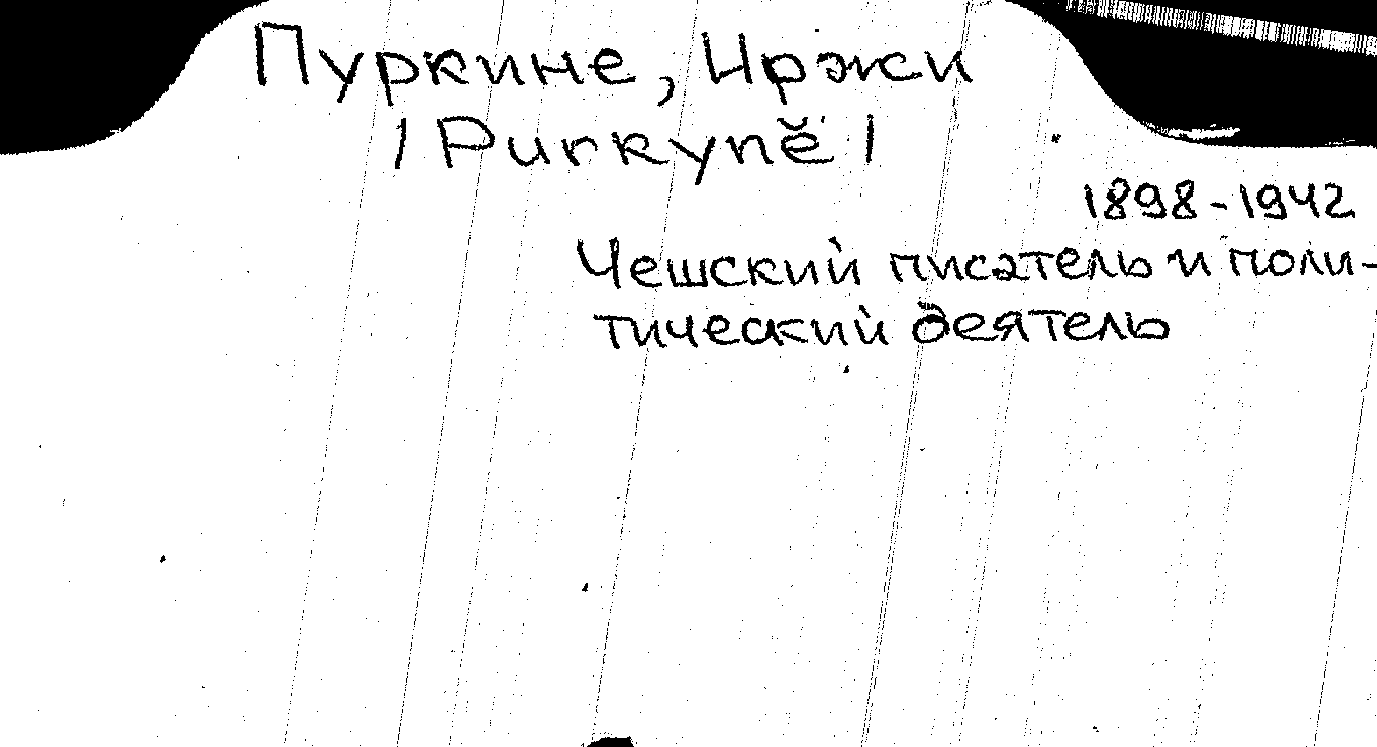 Пуркине, Иржи
/Purkyně/
1898-1942
Чешский писатель и поли-
тический деятель